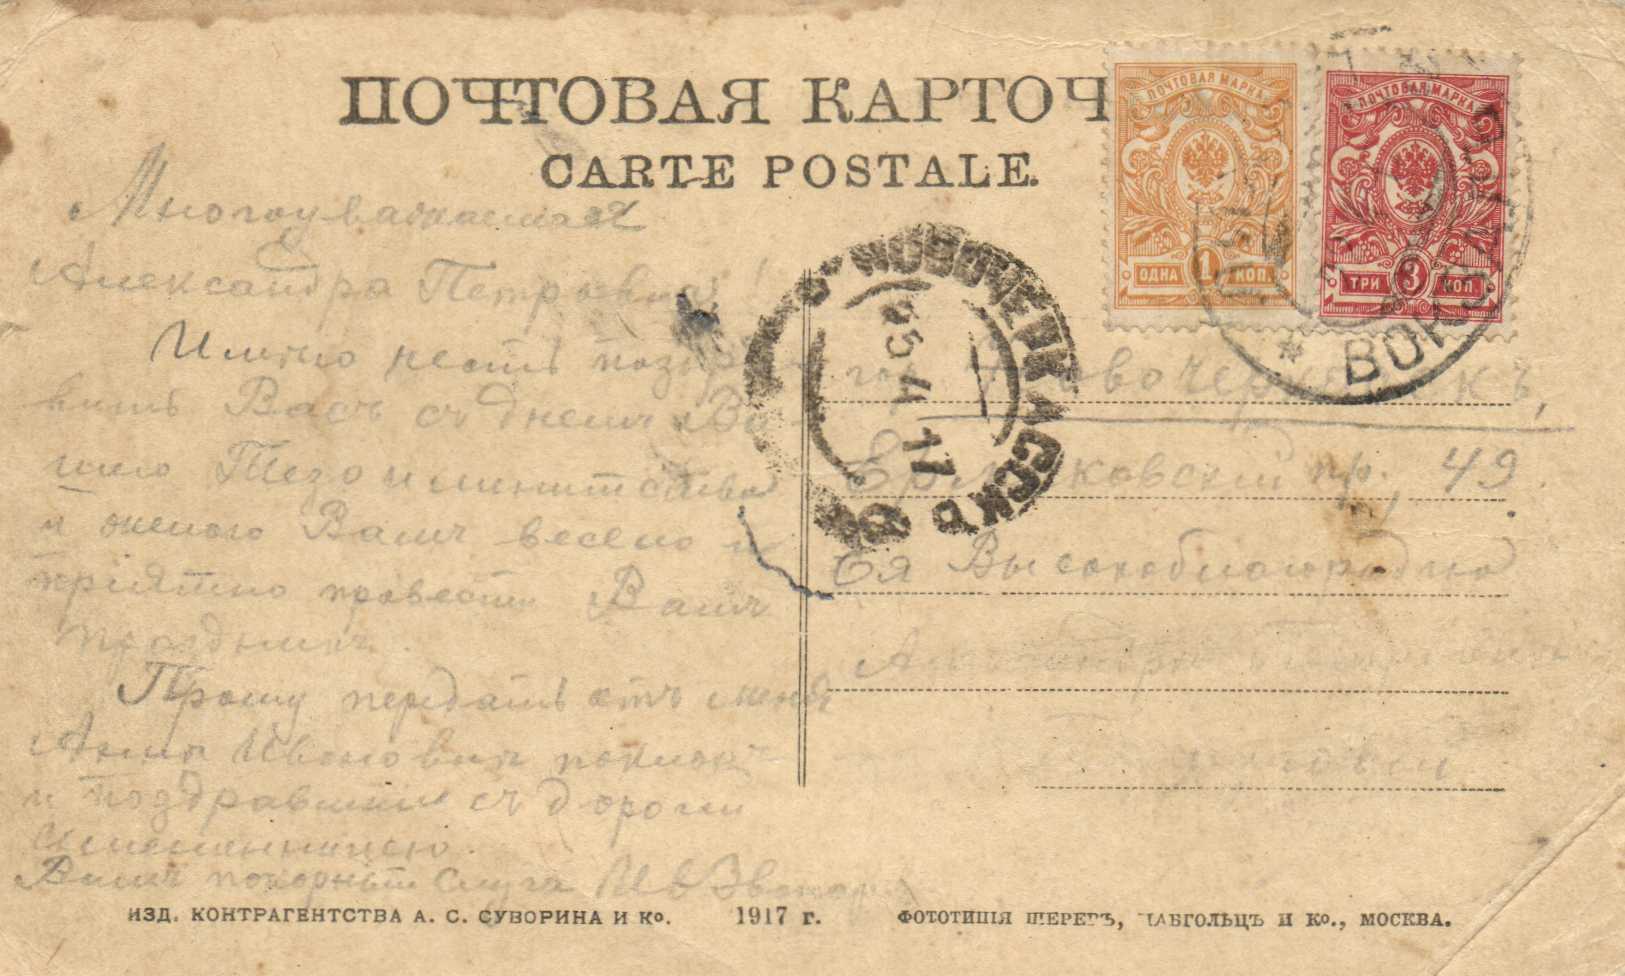 ПОЧТОВАЯ КАРТОЧ
CARTE POSTALE.
ПОЧТОВАЯ МАРКА
ОДНА 1 КОП
ПОЧТОВАЯ МАРКА
ТРИ 3 КОП
НОВОЧЕРКАССКЪ
25 4 17
Многоуважаемая
Александра Петровна!
Имѣю честь поздра-
вить Васъ съ днемъ Ва-
шего Тезоименитства
и желаю Вамъ весело и
пріятно провести Вамъ
праздникъ.
Прошу передать отъ меня
Аннѣ Ивановнѣ поклонъ
и поздравить съ дорогой
именинницею.
Вамъ покорный слуга
гор. Новочеркасскъ,
Ермаковскій пр., 49
Ея Высокоблагородію
Александрѣ Петровнѣ
ИЗД. КОНТРАГЕНТСТВА А. С. СУВОРИНА И Ко. 1917 г. ФОТОТИПІЯ ШЕРЕРЪ, НАБГОЛЬЦЪ И Ко., МОСКВА.